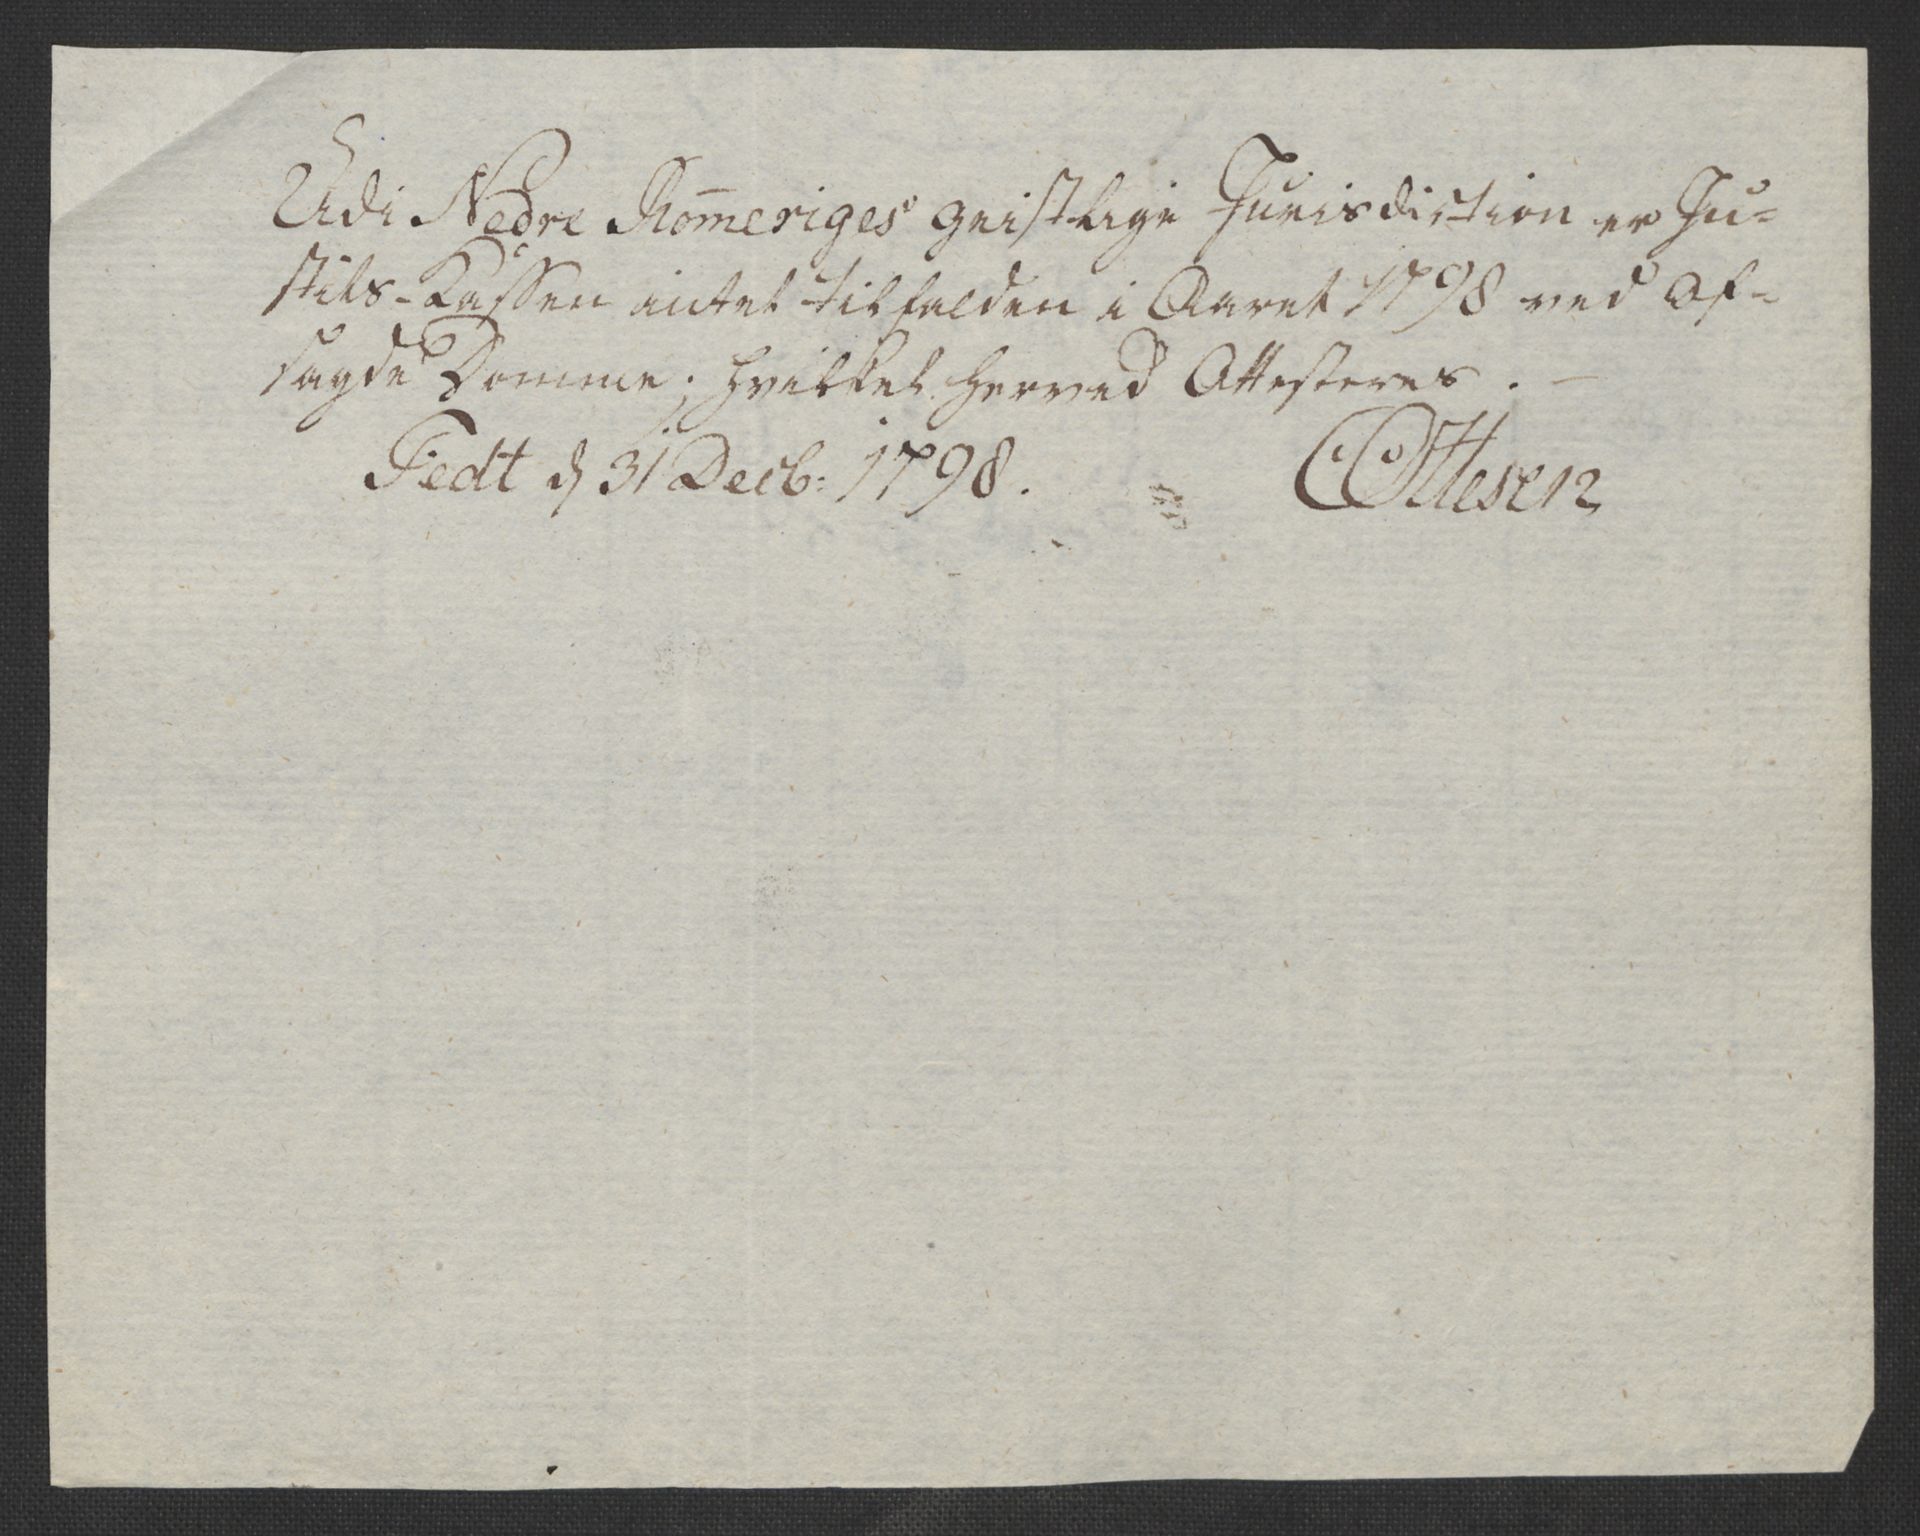 Udi Nedre Rom̄eriges geistlige Jurisdiction er Ju-
stits-Kassen intet tilfalden i Aaret 1798 ved Af-
sagde Domme; hvilket herved Attesteres. —
Fedt d 31 Decb: 1798. COttesen